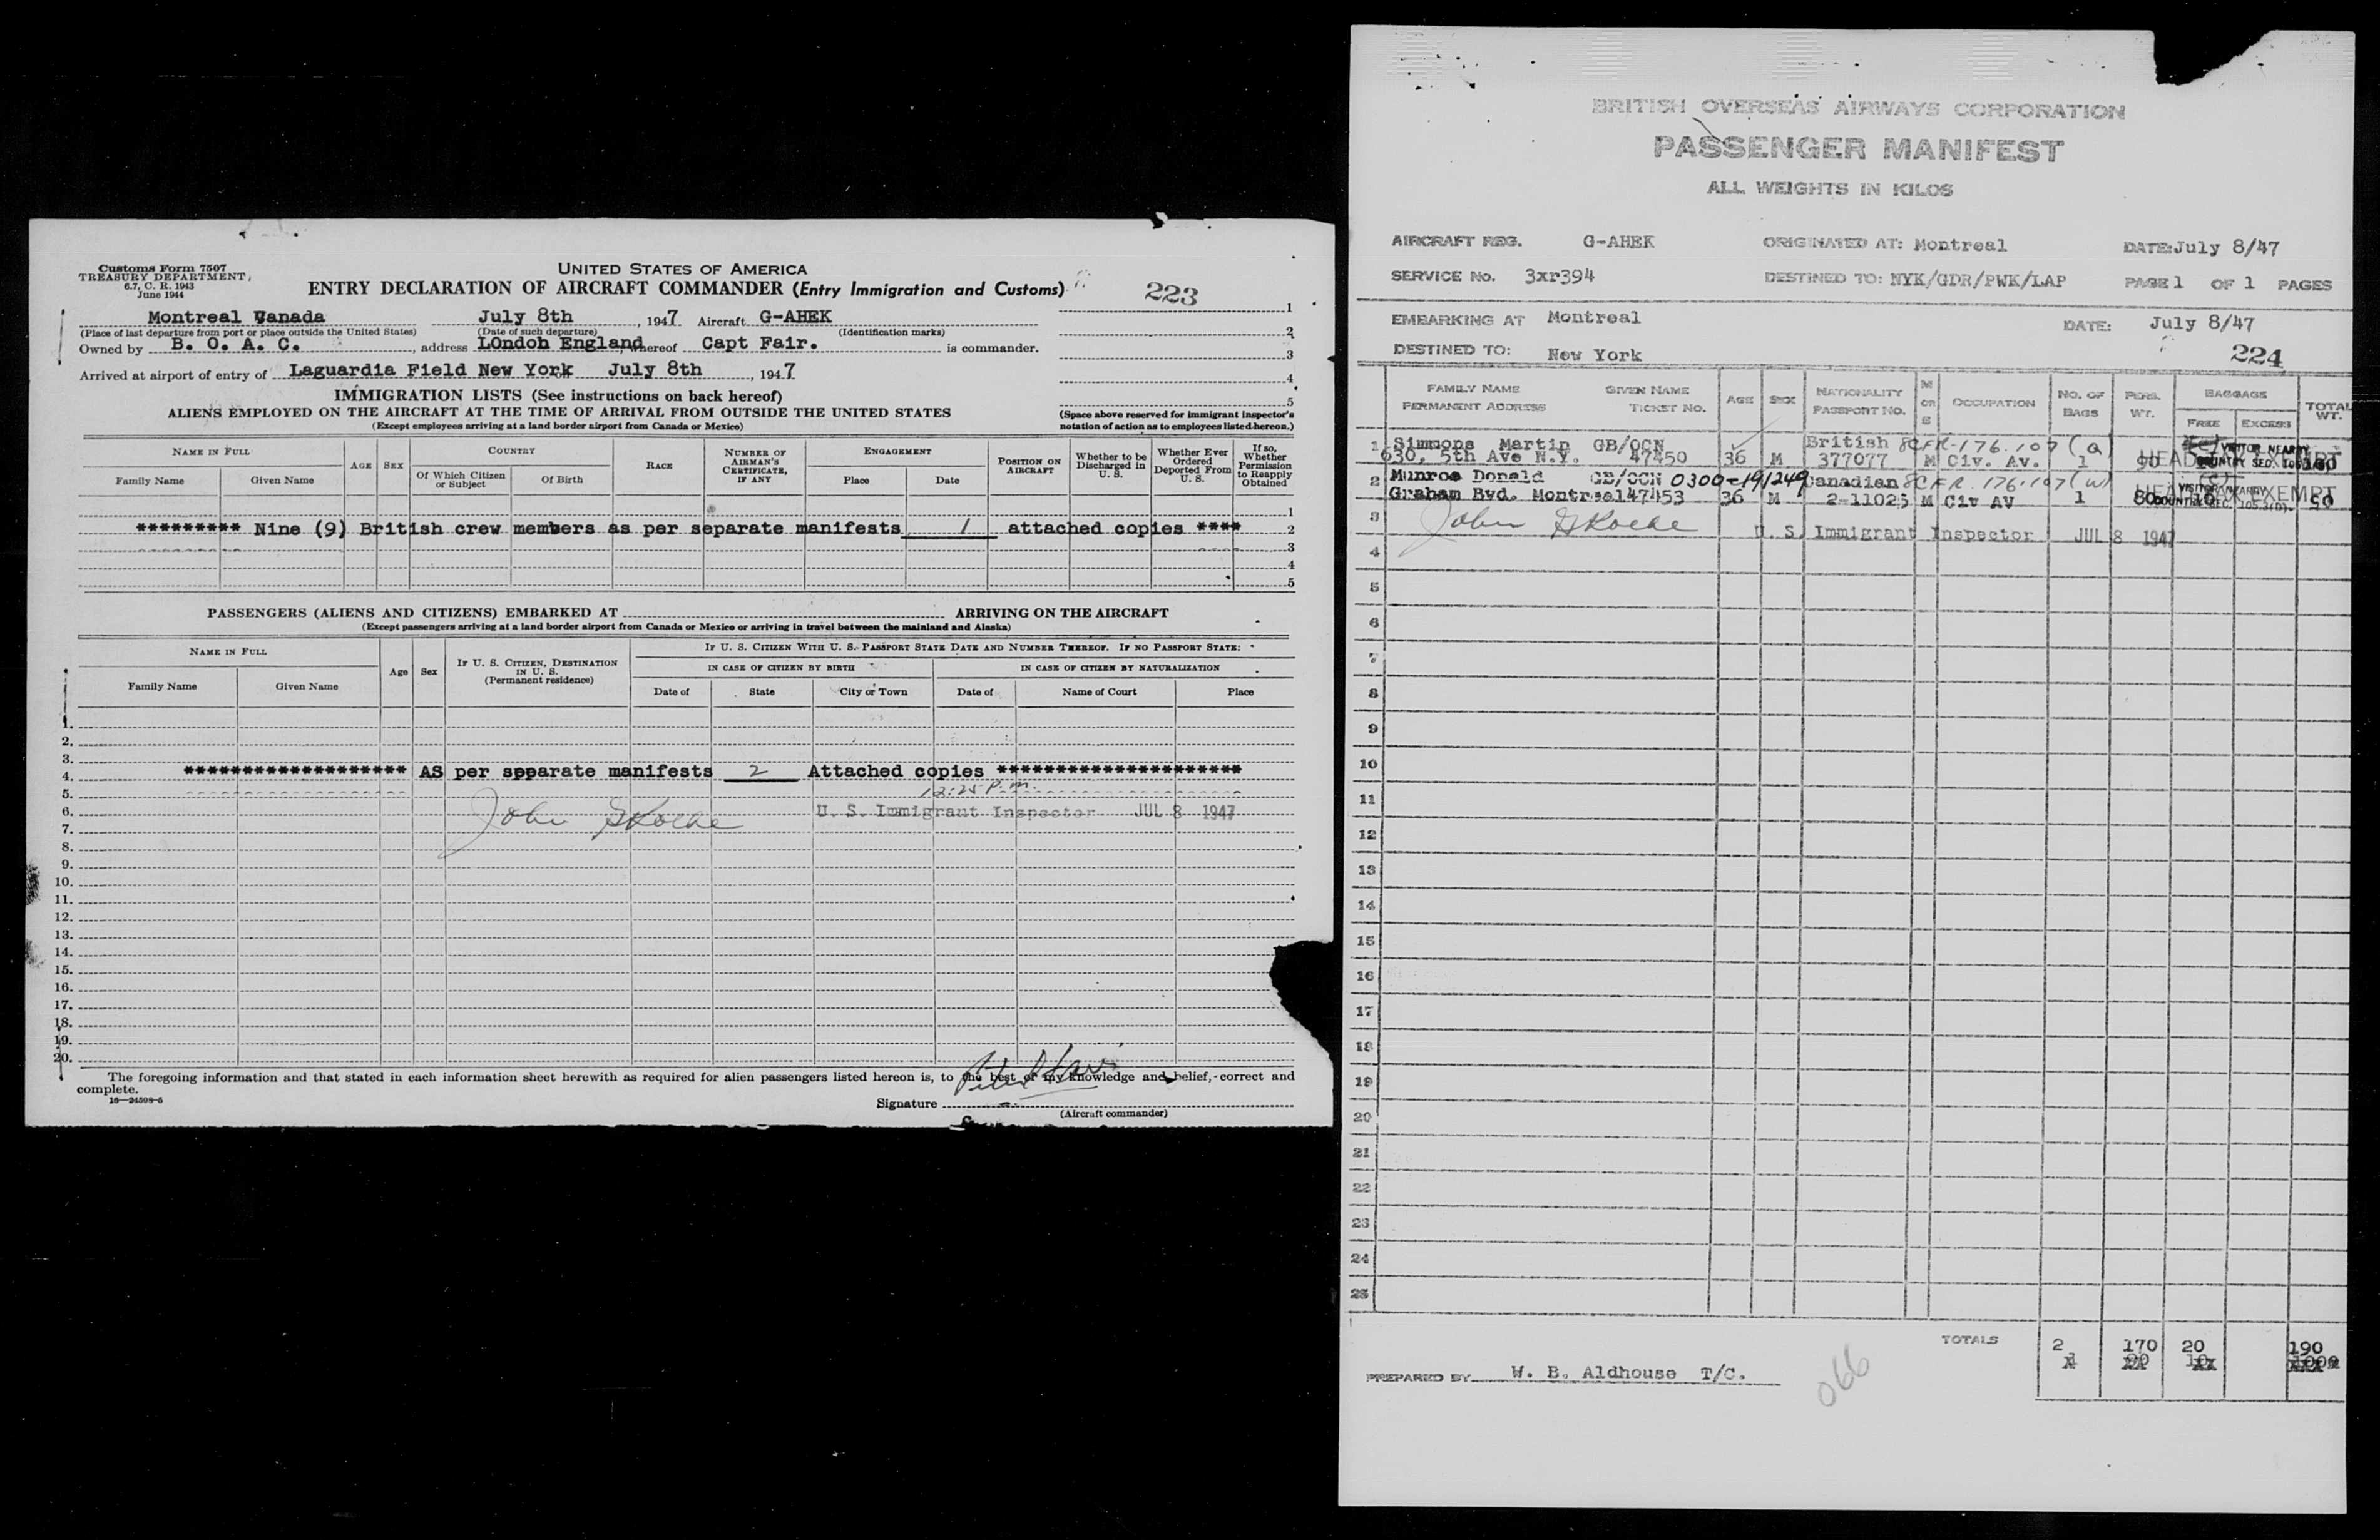 Customs Form 7507
TREASURY DEPARTMENT,
6.7, C. R. 1943
June 1944
UNITED STATES OF AMERICA
ENTRY DECLARATION OF AIRCRAFT COMMANDER (Entry Immigration and Customs)
223
1
2
3
4
5
Montreal Canada July 8th, 1947 Aircraft G-AHEK
(Place of last departure from port or place outside the United States) (Date of such departure) (Identification marks)
Owned by B. O. A. C., address LOndon England, whereof Capt Fair. is commander.
Arrived at airport of entry of Laguardia Field New York July 8th, 1947
IMMIGRATION LISTS (See instructions on back hereof)
ALIENS EMPLOYED ON THE AIRCRAFT AT THE TIME OF ARRIVAL FROM OUTSIDE THE UNITED STATES
(Except employees arriving at a land border airport from Canada or Mexico)
(Space above reserved for immigrant inspector's
notation of action as to employees listed hereon.)
NAME IN FULL
Family Name Given Name
AGE SEX
COUNTRY
Of Which Citizen or Subject Of Birth
RACE
NUMBER OF AIRMAN'S CERTIFICATE, IF ANY
ENGAGEMENT
Place Date
POSITION ON AIRCRAFT
Whether to be Discharged in U. S.
Whether Ever Ordered Deported From U. S.
If so, Whether Permission to Reapply Obtained
1
********* Nine (9) British crew members as per separate manifests 1 attached copies **** 2
3
4
5
PASSENGERS (ALIENS AND CITIZENS) EMBARKED AT ARRIVING ON THE AIRCRAFT
(Except passengers arriving at a land border airport from Canada or Mexico or arriving in travel between the mainland and Alaska)
NAME IN FULL
Family Name Given Name
Age Sex
IF U. S. CITIZEN, DESTINATION IN U. S.
(Permanent residence)
IF U. S. CITIZEN WITH U. S. PASSPORT STATE DATE AND NUMBER THEREOF. IF NO PASSPORT STATE:
IN CASE OF CITIZEN BY BIRTH IN CASE OF CITIZEN BY NATURALIZATION
Date of State City or Town Date of Name of Court Place
1.
2.
3.
4. ******************* AS per separate manifests 2 Attached copies *********************
5. 12:25 P.m.
6. John U. S. Immigrant Inspector JUL 8 1947
7.
8.
9.
10.
11.
12.
13.
14.
15.
16.
17.
18.
19.
20.
The foregoing information and that stated in each information sheet herewith as required for alien passengers listed hereon is, to the best of my knowledge and belief, correct and
complete.
16—24598-5
Signature
(Aircraft commander)
BRITISH OVERSEAS AIRWAYS CORPORATION
PASSENGER MANIFEST
ALL WEIGHTS IN KILOS
AIRCRAFT REG. G-AHEK ORIGINATED AT: Montreal DATE: July 8/47
SERVICE No. 3xr394 DESTINED TO: NYK/GDR/PWK/LAP PAGE 1 OF 1 PAGES
EMBARKING AT Montreal DATE: July 8/47
DESTINED TO: New York
224
FAMILY NAME GIVEN NAME
PERMANENT ADDRESS TICKET No.
AGE
SEX
NATIONALITY
PASSPORT NO.
M OR S
OCCUPATION
NO. OF BAGS
PERS. WT.
BAGGAGE
FREE EXCESS
TOTAL WT.
1 Simmons Martin GB/OCN British 8CFR-176.107 (a) VISITOR NEARBY
630, 5th Ave N.Y. 47450 36 M 377077 M Civ. Av. 1 90 HEAD TAX EXEMPT COUNTRY SEC. 105.3(D). 100
2 Munroe Donald GB/OCN 0300-191249 Canadian 8CFR 176.107 (w) VISITOR NEARBY
Graham Bvd. Montreal 47453 36 M 2-11025 M Civ AV 1 80 10 HEAD TAX EXEMPT COUNTRY SEC. 105.3(D). 90
3 John U. S. Immigrant Inspector JUL 8 1947
4
5
6
7
8
9
10
11
12
13
14
15
16
17
18
19
20
21
22
23
24
25
TOTALS 2 170 20 190
PREPARED BY W. B. Aldhouse T/C.
066